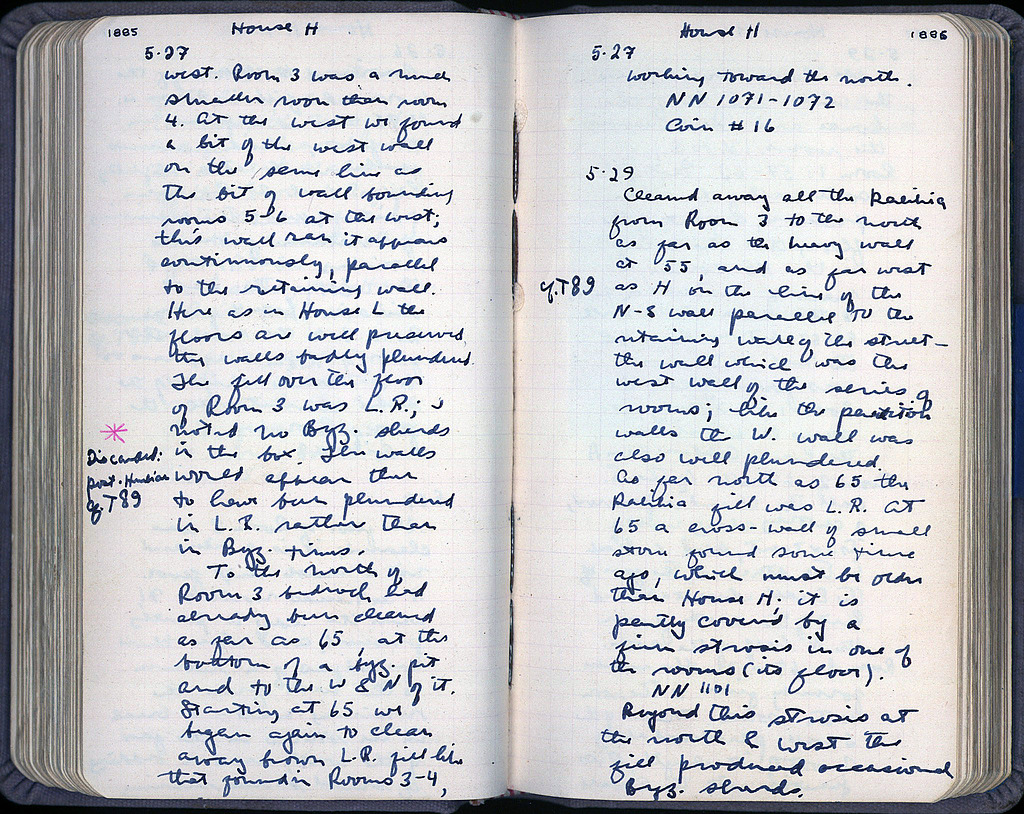 1885
House H
5·27
west. Room 3 was a much
smaller room than room
4. At the west we found
a bit of the west wall
on the same line as
the bit of wall bounding
rooms 5-6 at the west;
this wall ran it appears
continuously, parallel
to the retaining wall.
Here as in House L the
floors are well preserved,
the walls badly plundered.
The fill over the floor
of Room 3 was L.R.;
noted no Byz. sherds
in the box. The walls
would appear then
to have been plundered
in L.R. rather than
in Byz. times.
To the north of
Room 3 bedrock had
already been cleaned
as far as 65, at the
bottom of a Byz. pit
and to the W & N of it.
Starting at 65 we
began again to clear
away brown L.R. fill like
that found in Rooms 3-4,
Discarded:
post-Herulian
cf. T89
1886
House H
5·27
working toward the north.
NN 1071-1072
Coin # 16
5·29
Cleaned away all the Rakihia
from Room 3 to the north
as far as the heavy wall
at 55, and as far west
as H on the line of the
N-S wall parallel to the
retaining wall of the street—
the wall which was the
west wall of the series of
rooms; like the partition
walls the W. wall was
also well plundered.
As far north as 65 the
Rakihia fill was L.R. At
65 a cross-wall of small
stones found some time
ago, which must be older
than House H; it is
partly covered by a
firm strosis in one of
the rooms (its floor).
NN 1101
Beyond this strosis at
the north & west the
fill produced occasional
Byz. sherds.
cf. T89